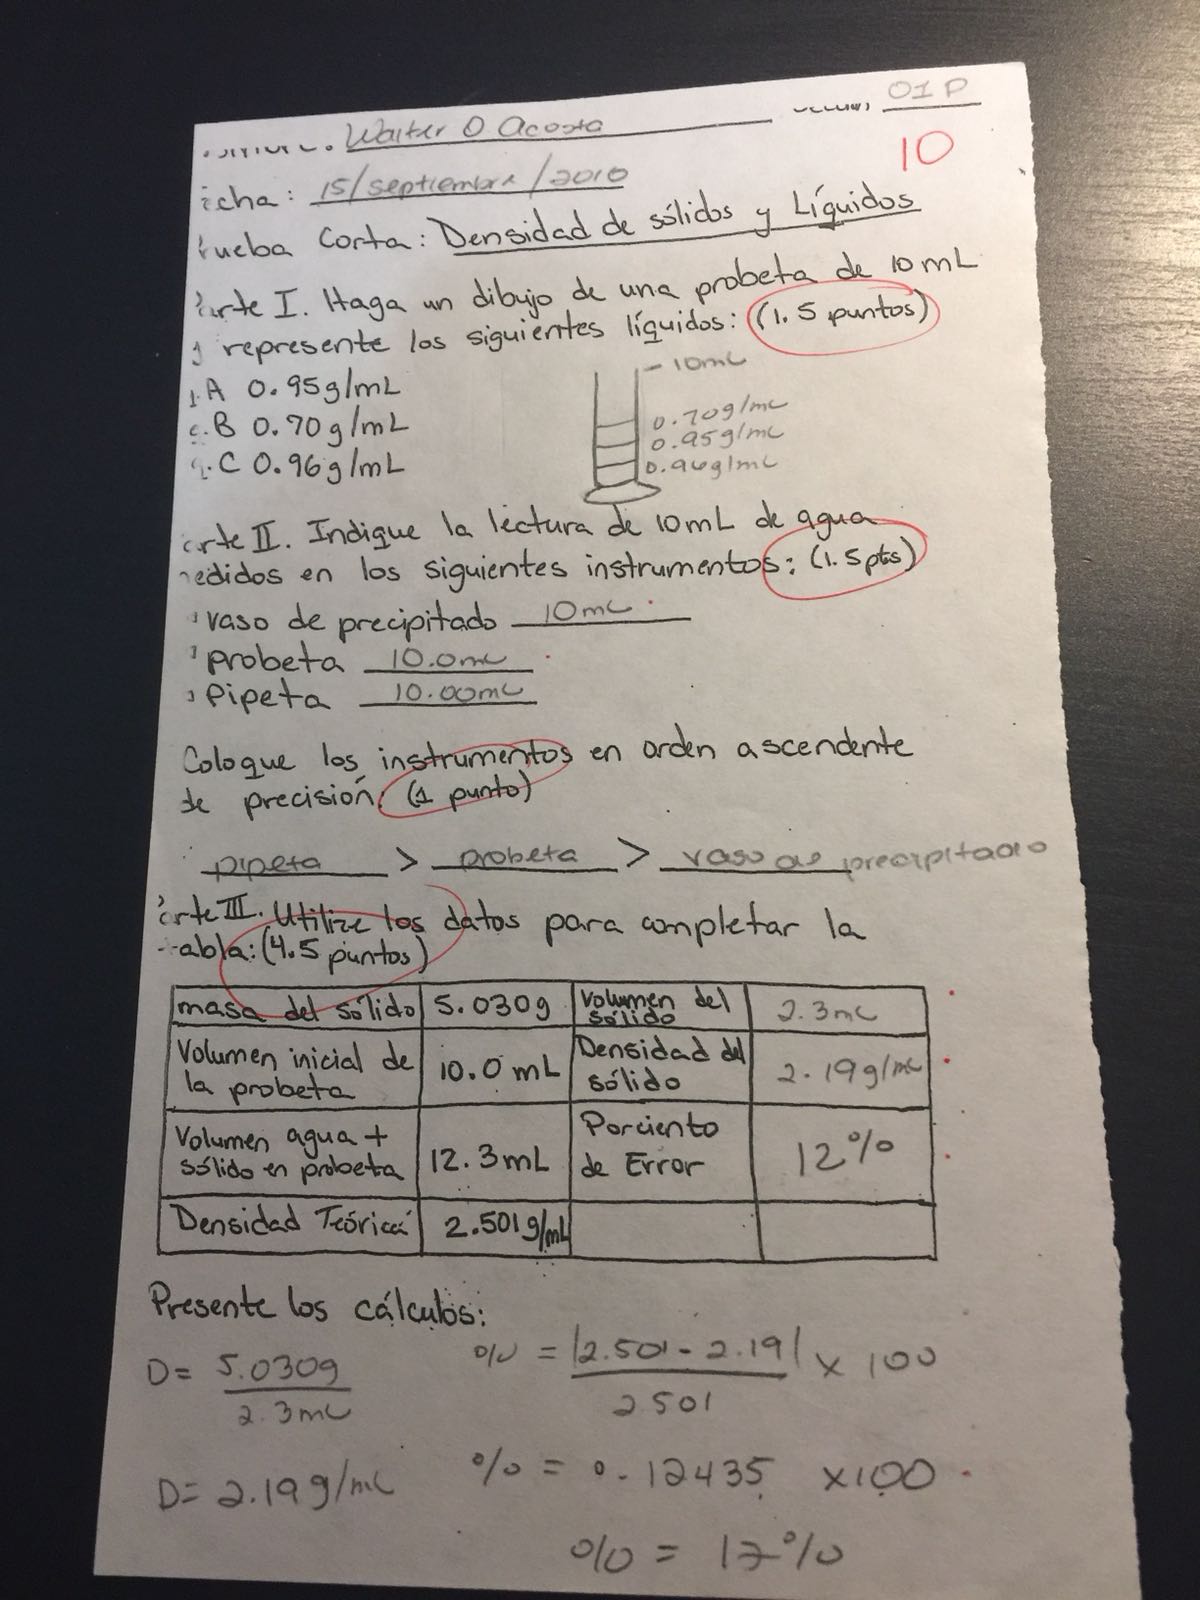 Walter O Acosta
01P
10
echa: 15/septiembre/2010
rueba Corta: Densidad de sólidos y Líquidos
arte I. Haga un dibujo de una probeta de 10mL
y represente los siguientes líquidos: (1.5 puntos)
1. A 0.95g/mL
B 0.70g/mL
C 0.96g/mL
- 10mL
0.70g/mL
0.95g/mL
0.96g/mL
arte II. Indique la lectura de 10mL de agua
medidos en los siguientes instrumentos: (1.5pts)
vaso de precipitado 10mL
probeta 10.0mL
Pipeta 10.00mL
Coloque los instrumentos en orden ascendente
de precisión. (1 punto)
pipeta > probeta > vaso de precipitado
arte III. Utilize los datos para completar la
tabla: (4.5 puntos)
masa del sólido 5.030g Volumen del sólido 2.3mL
Volumen inicial de la probeta 10.0mL Densidad del sólido 2.19g/mL
Volumen agua + sólido en probeta 12.3mL Porciento de Error 12%
Densidad Teórica 2.501g/mL
Presente los cálculos:
D= 5.030g / 2.3mL
% = |2.501 - 2.19| / 2.501 x 100
D= 2.19g/mL
% = 0.12435 x100
% = 12%